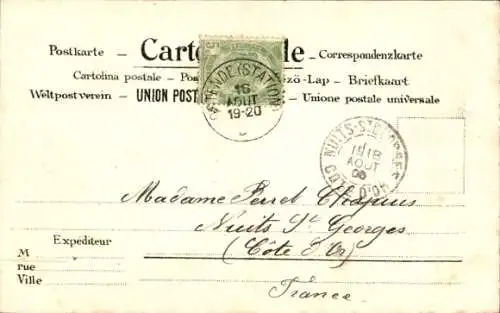 Postkarte – Carto le – Correspondenzkarte
Cartolina postale – Pos zö-Lap – Briefkaart
Weltpostverein – UNION POST – Unione postale universale
OSTENDE (STATION)
16
AOUT
19-20
NUITS-ST-GEORGES
18
AOUT
COTE D'OR
Madame Perret Chapuis
Nuits St Georges
(Côte d'Or)
France
Expéditeur
M
rue
Ville